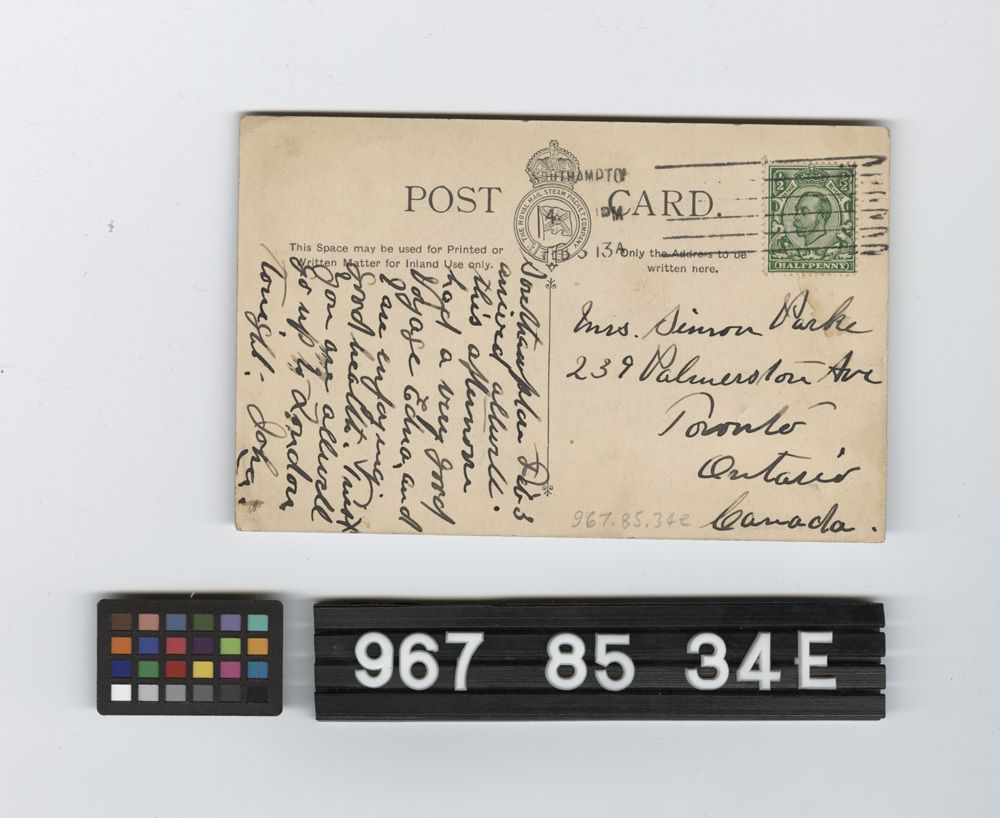 POST CARD.
THE ROYAL MAIL STEAM PACKET COMPANY
SOUTHAMPTO
PM
FB 3 13A
HALFPENNY
This Space may be used for Printed or
Written Matter for Inland Use only.
Only the Address to be
written here.
Southampton Feb 3
arrived allwell.
this afternoon
had a very good
Voyage Edna, and
I are enjoying
good health. Trust
you are allwell
Go up to London
tonight. John.
Mrs. Simon Parke
239 Palmerston Ave
Toronto
Ontario
Canada.
967.85.34E
967 85 34E